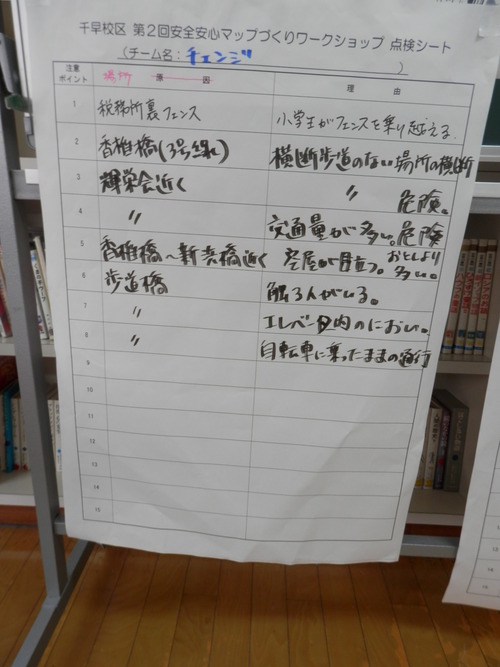 千早校区 第2回安全安心マップづくりワークショップ 点検シート
(チーム名: チェンジ )
注意ポイント 場所 原 因 理 由
1 税務所裏フェンス 小学生がフェンスを乗り越える。
2 香椎橋(3号線) 横断歩道のない場所の横断
3 輝栄会近く 〃 危険。
4 〃 交通量が多い。危険
5 香椎橋〜新共橋近く 空屋が目立つ。おとしより多い。
6 歩道橋 触る人がいる。
7 〃 エレベータ内のにおい。
8 〃 自転車に乗ったままの通行
9
10
11
12
13
14
15